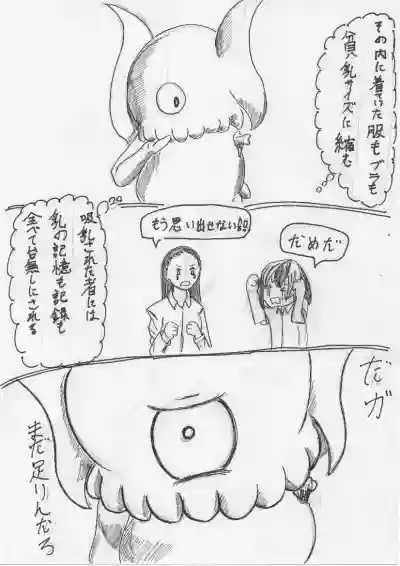 その内に着ていた服もブラも
貧乳サイズに縮む
だめだ
もう思い出せない
吸乳された者には
乳の記憶も記録も
全べて台無しにされる
だガ
まだ足りんだろ